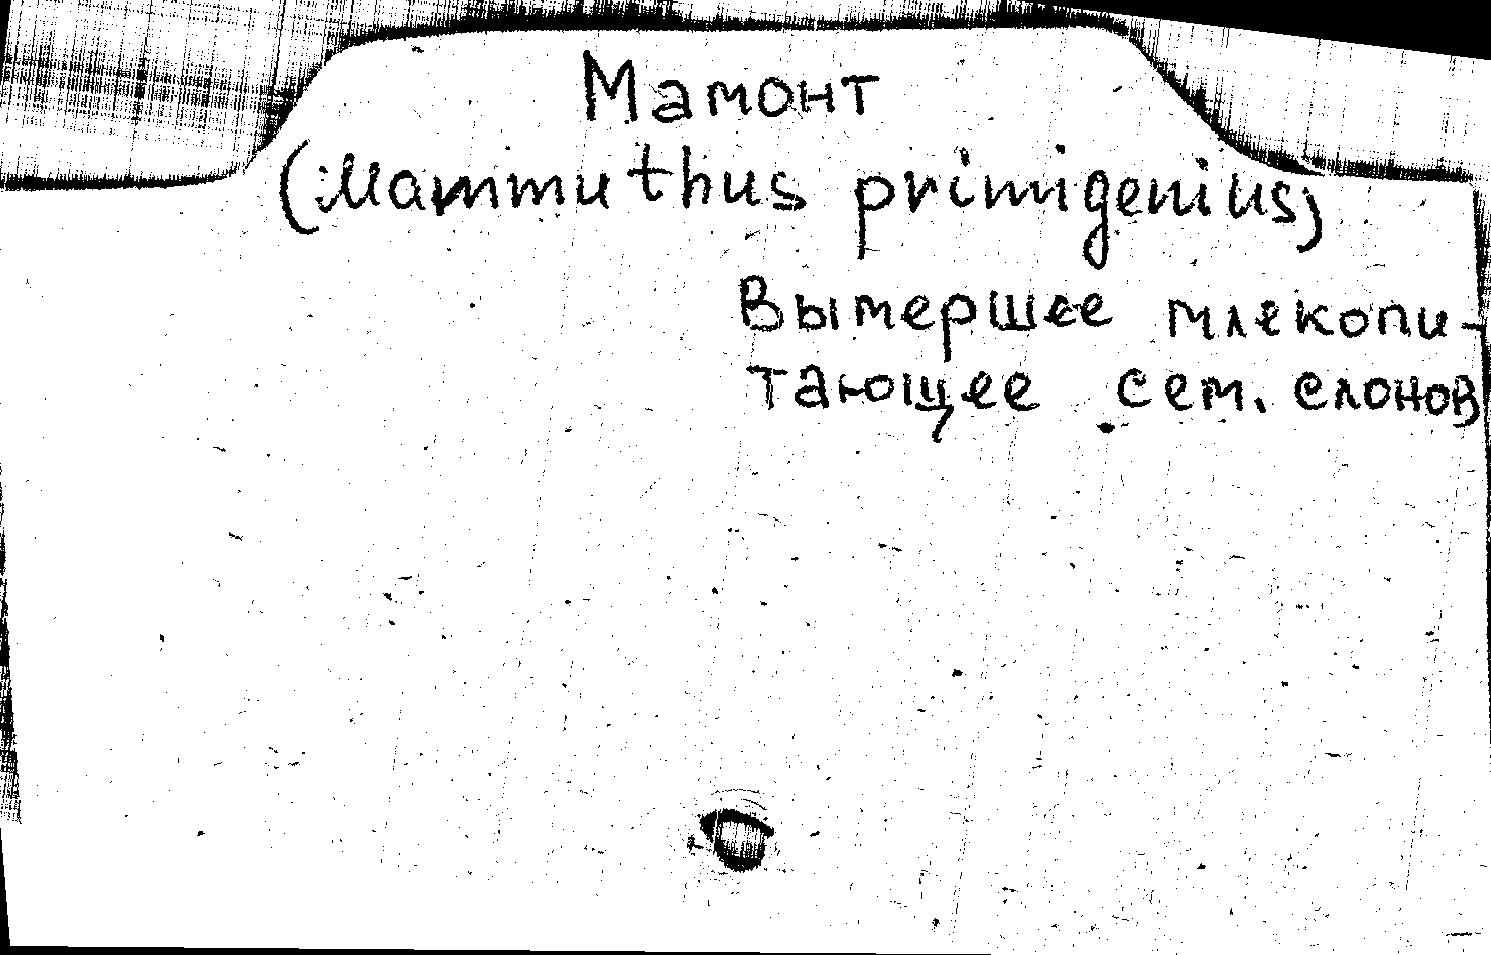 Мамонт
(Mammuthus primigenius)
Вымершее млекопи-
тающее сем. слонов